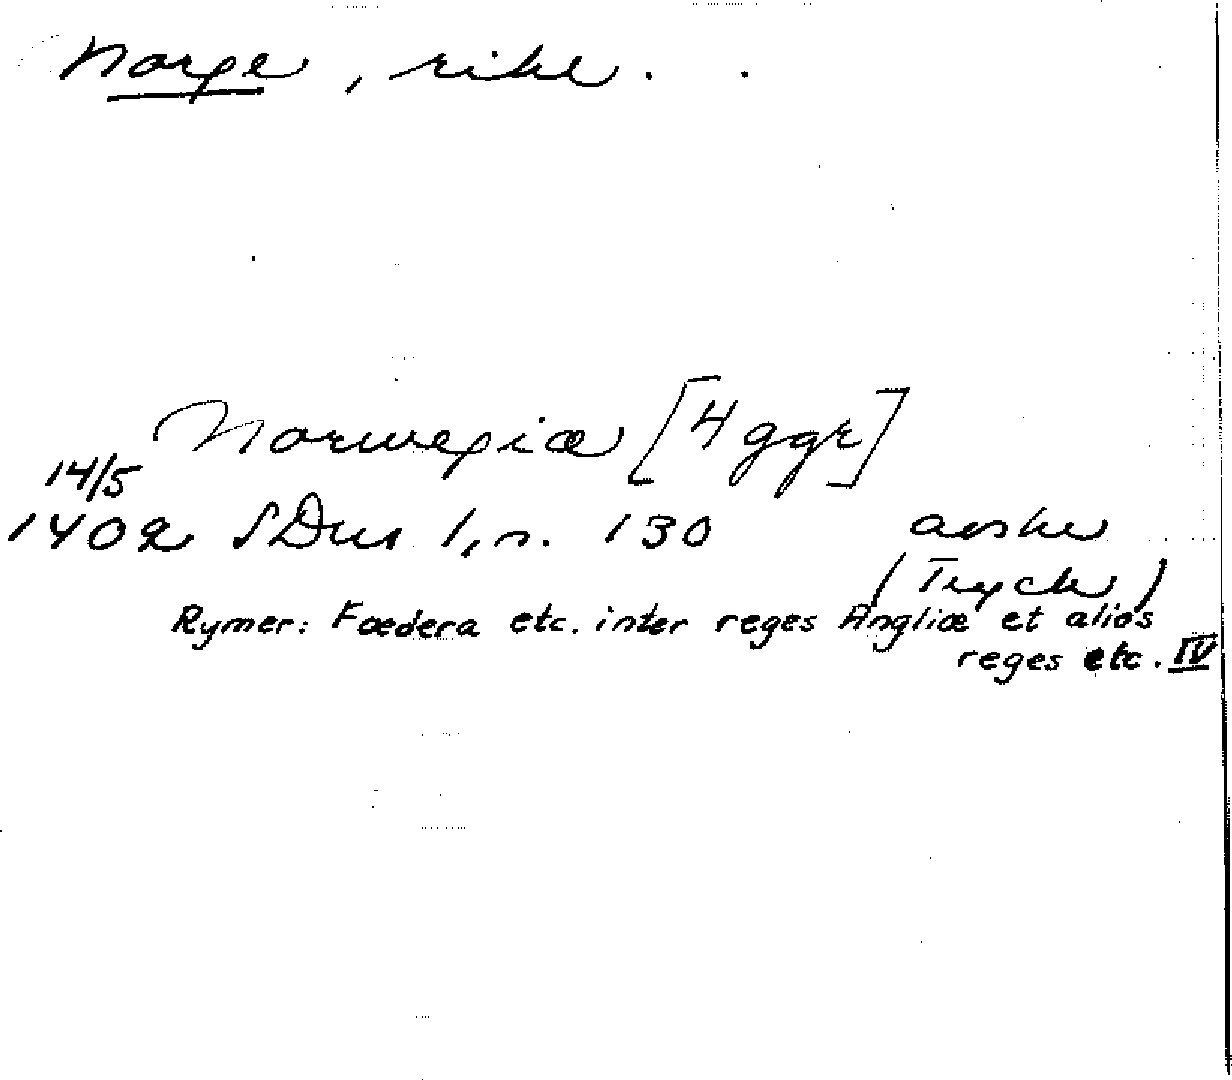 Norge, rike.
Norwegiæ [4 ggr]
14/5
1402 SDns 1, n. 130 avskr
(Tryck)
Rymer: Fœdera etc. inter reges Angliæ et alios
reges etc. IV